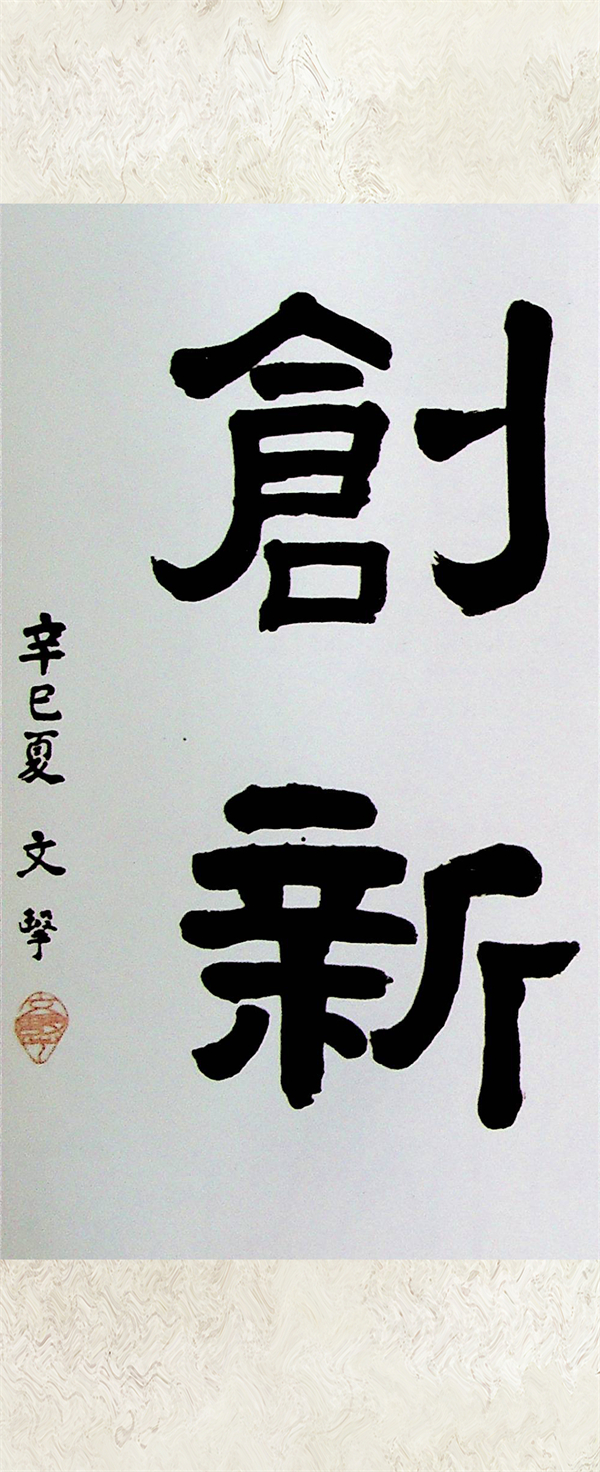 創新
辛巳夏 文